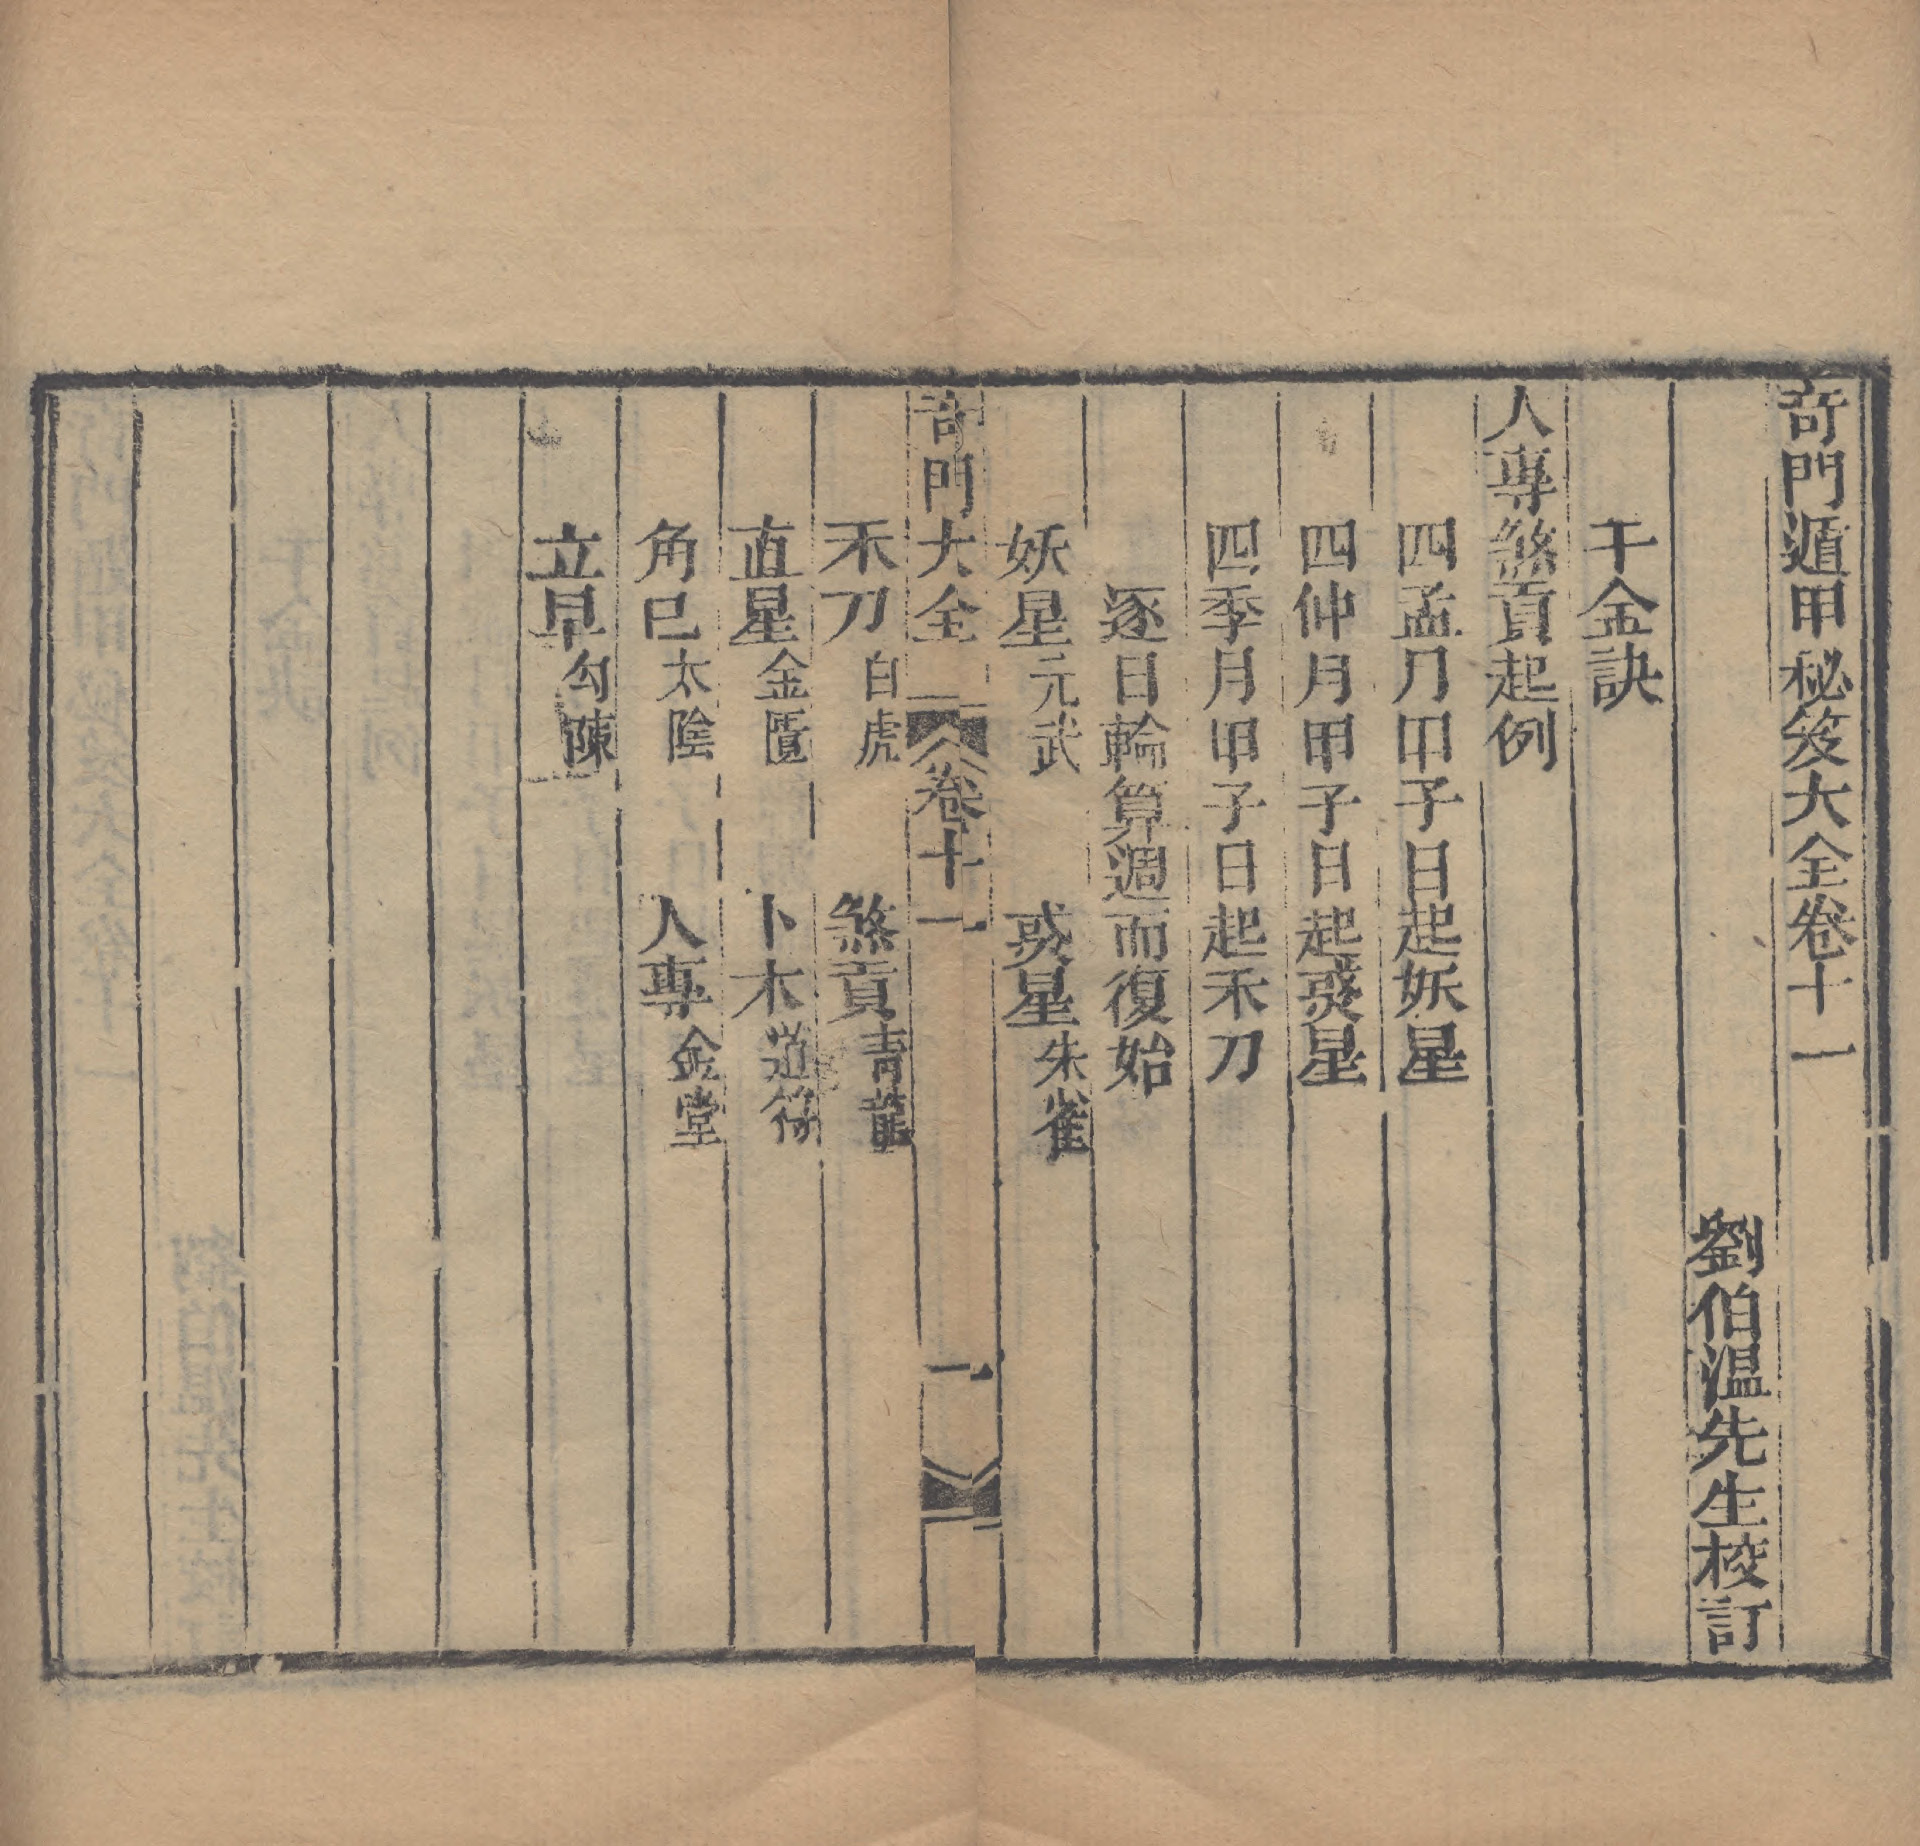 奇門遁甲秘笈大全卷十一
劉伯溫先生校訂
千金訣
人專煞貢起例
四孟月甲子日起妖星
四仲月甲子日起惑星
四季月甲子日起禾刀
逐日輪算週而復始
妖星元武　惑星朱雀
奇門大全　卷十一　一
禾刀白虎　煞貢青龍
直星金匱　卜木道符
角巳太陰　人專金堂
立早勾陳